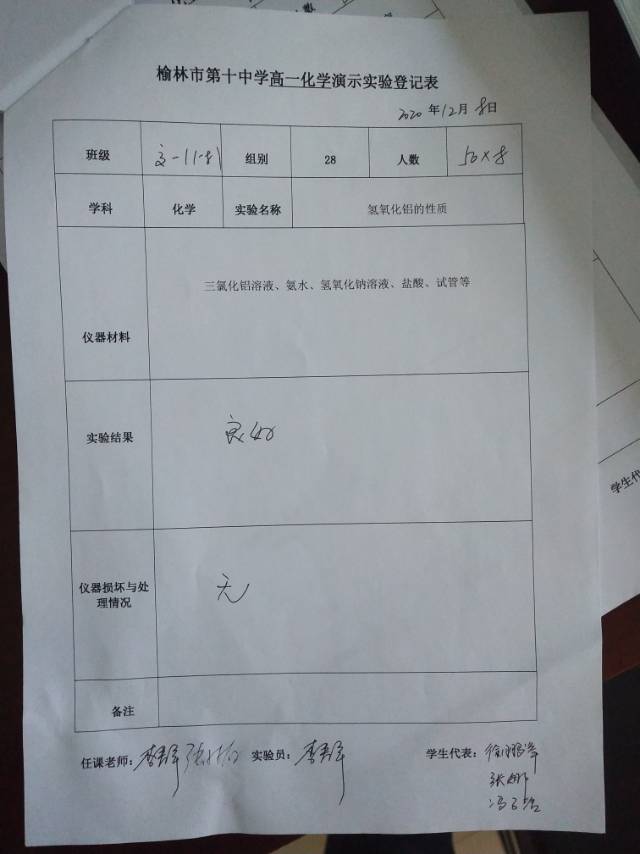 榆林市第十中学高一化学演示实验登记表
2020 年 12 月 8 日
班级 组别 28 人数 50×8
学科 化学 实验名称 氢氧化铝的性质
三氯化铝溶液、氨水、氢氧化钠溶液、盐酸、试管等
仪器材料
实验结果 良好
仪器损坏与处
理情况
无
备注
任课老师: 实验员: 学生代表:
张娜
学生代